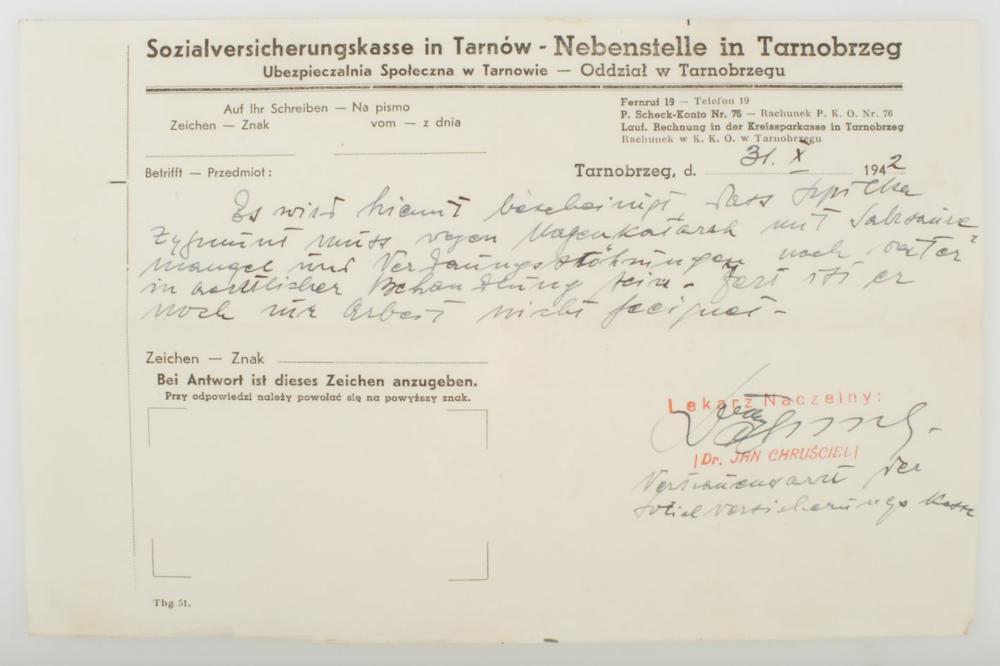 Sozialversicherungskasse in Tarnów - Nebenstelle in Tarnobrzeg
Ubezpieczalnia Społeczna w Tarnowie — Oddział w Tarnobrzegu
Auf Ihr Schreiben — Na pismo
Zeichen — Znak vom — z dnia
Fernruf 19 — Telefon 19
P. Scheck-Konto Nr. 76 — Rachunek P. K. O. Nr. 76
Lauf. Rechnung in der Kreissparkasse in Tarnobrzeg
Rachunek w K. K. O. w Tarnobrzegu
Betrifft — Przedmiot:
Tarnobrzeg, d. 31. X 1942
Es wird hiemit bescheinigt dass
Zygmunt muss wegen Magenkatarah mit
mangel und Verdauungsstöhrungen noch
in aerztlicher Behandlung sein - ist er
noch zur Arbeit nicht geeignet -
Zeichen — Znak
Bei Antwort ist dieses Zeichen anzugeben.
Przy odpowiedzi należy powołać się na powyższy znak.
Lekarz Naczelny:
(Dr. JAN CHRUŚCIEL)
Vertrauensarzt der
Sozialversicherungs Kasse
Tbg 51.